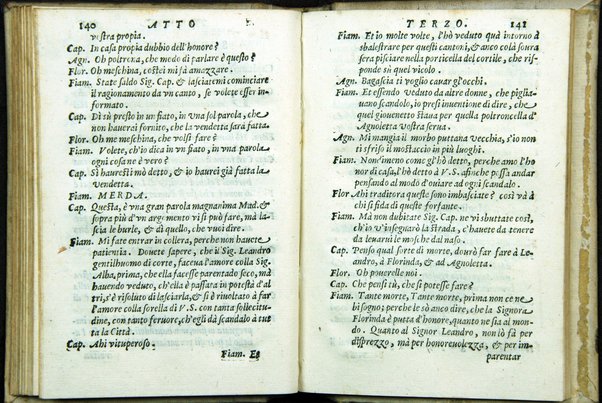 140 ATTO
vostra propia.
Cap. In casa propia dubbio dell'honore?
Agn. Oh poltrona, che modo di parlare è questo?
Flor. Oh meschina, costei mi fà amazzare.
Fiam. State saldo Sig. Cap. & lasciatemi cominciare
il ragionamento da vn canto, se volete esser in-
formato.
Cap. Dì sù presto in vn fiato, in vna sol parola, che
non hauerai fornito, che la vendetta sarà fatta.
Flor. Oh me meschina, che volsi fare?
Fiam. Volete, ch'io dica in vn fiato, in vna parola
ogni cosa ne è vero?
Cap. Sì hauresti mò detto, & io haurei già fatta la
vendetta.
Fiam. MERDA.
Cap. Questa, è vna gran parola magnanima Mad. &
sopra più d'vn argomento vi si può fare, ma la-
scia le burle, & dì quello, che vuoi dire.
Fiam. Mi fate entrar in collera, perche non hauete
patientia. Douete sapere, che il Sig. Leandro
gentilhuomo di corte, faceua l'amore colla Sig.
Alba, prima, che ella facesse parentado seco, mà
hauendo veduto, ch'ella è passata in potestà d'al
tri, s'è risoluto di lasciarla, & si è riuoltato à far
l'amore colla sorella di V. S. con tanta sollecitu-
dine, con tanto feruore, ch'egli dà scandalo à tut
ta la Città.
Cap. Ahi vituperoso.
Fiam. Et
TERZO. 141
Fiam. Et io molte volte, l'hò veduto quà intorno à
sbalestrare per questi cantoni, & anco colà soura
sera pisciare in nella porticella del cortile, che ris-
ponde sù quel vicolo.
Agn. Bagascia ti voglio cauar gl'occhi.
Fiam. Et essendo veduto da altre donne, che piglia-
uano scandolo, io presi inuentione di dire, che
quel giouenetto staua per quella poltroncella d'
Agnoletta vostra serua.
Agn. Mi mangia il morbo puttana vecchia, s'io non
ti sfrifo il mostaccio in più luoghi.
Fiam. Non'i meno come gl'hò detto, perche amo l'ho
nor di casa, l'hò detto à V. S. afinche possa andar
pensando al modo d'ouiare ad ogni scandalo.
Flor Ahi traditora queste sono imbasciate? così và à
chi si fida di queste forfante.
Fiam. Mà non dubitate Sig. Cap. ne vi sbuttate così,
ch'io v'insegnarò la strada, c'hauete da tenere
da leuarui le mosche dal naso.
Cap. Penso qual sorte di morte, dourò far fare à Le-
andro, à Florinda, & ad Agnoletta.
Flor. Oh pouerelle noi.
Cap. Che pensi tù, che si potesse fare?
Fiam. Tante morte, Tante morte, prima non ce ne è
bisogno; perche le sò anco dire, che la Signora
Florinda è putta d'honore, quanto ne sia al mon-
do. Quanto al Signor Leandro, non lo fà per
disprezzo, mà per honoreuolezza, & per im-
parentar